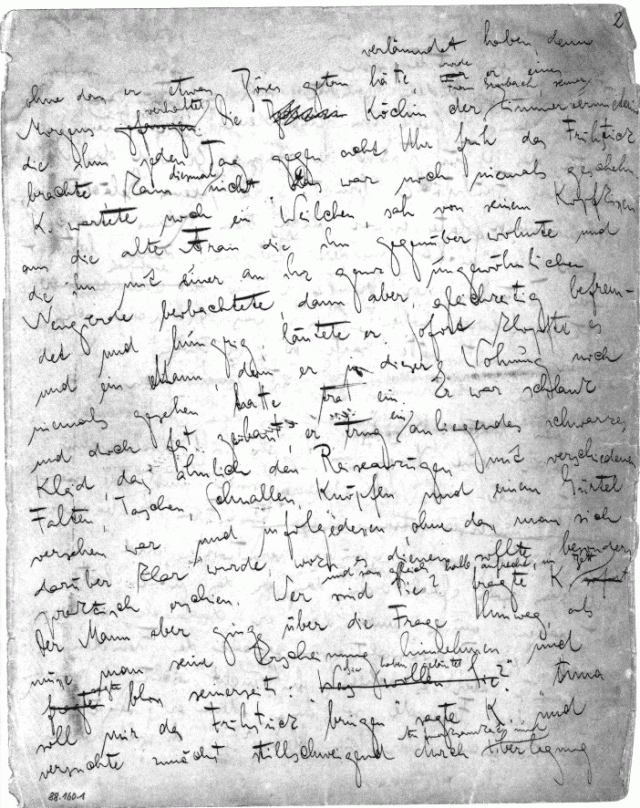 2
verläumdet haben, denn
ohne dass er etwas Böses getan hätte, wurde er eines
Morgens verhaftet. Die Köchin der Frau Grubach seiner Zimmervermieterin
die ihm jeden Tag gegen acht Uhr früh das Frühstück
brachte kam diesmal nicht. Das war noch niemals geschehn.
K. wartete noch ein Weilchen, sah von seinem Kopfkissen
aus die alte Frau die ihm gegenüber wohnte und
die ihn mit einer an ihr ganz ungewöhnlichen
Neugierde beobachtete, dann aber, gleichzeitig befrem-
det und hungrig, läutete er. Sofort klopfte es
und ein Mann, den er in dieser Wohnung noch
niemals gesehen hatte trat ein. Er war schlank
und doch fest gebaut, er trug ein anliegendes schwarzes
Kleid, das ähnlich den Reiseanzügen mit verschiedenen
Falten, Taschen, Schnallen, Knöpfen und einem Gürtel
versehen war und infolgedessen, ohne dass man sich
darüber klar wurde, wozu es dienen sollte, besonders
praktisch erschien. "Wer sind Sie?" fragte K. und sass gleich halb aufrecht im Bett
Der Mann aber ging über die Frage hinweg, als
müsse man seine Erscheinung hinnehmen und
fragte sagte bloss seinerseits: "Was wollen Sie?" "Sie haben geläutet?" "Anna
soll mir das Frühstück bringen" sagte K. und
versuchte zunächst stillschweigend durch Aufmerksamkeit und Überlegung
88.160.1